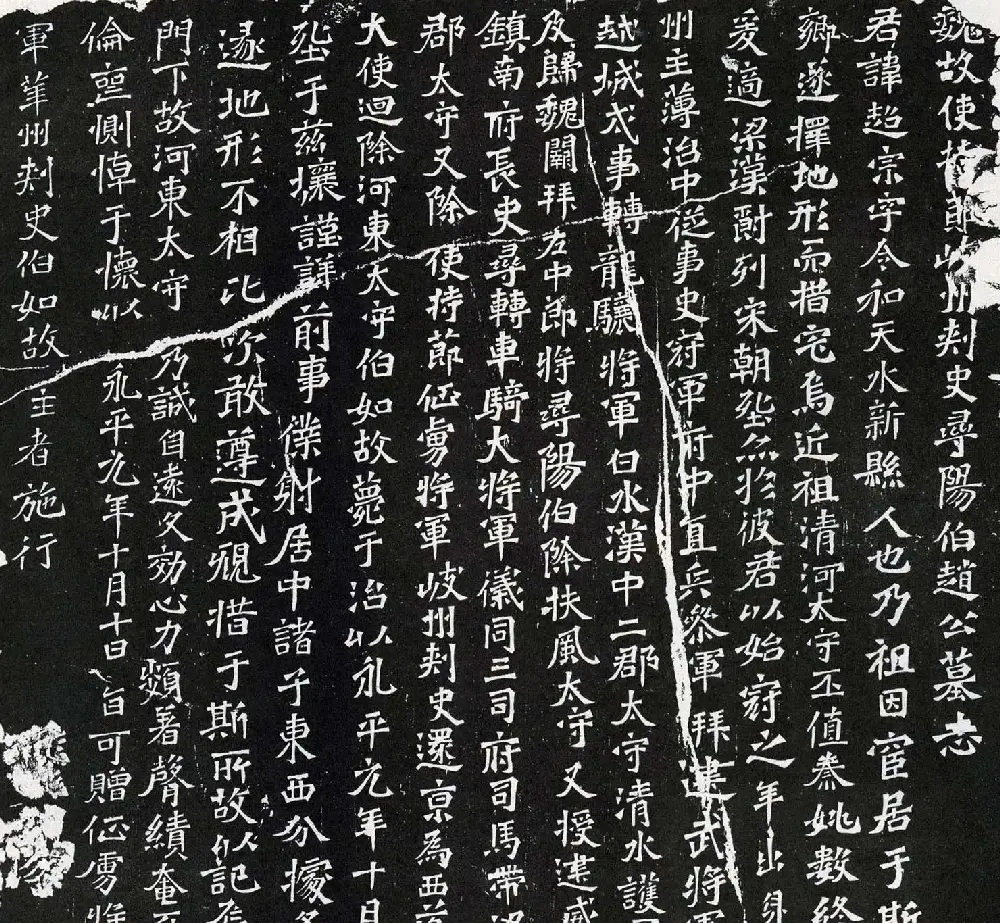 魏故使持節岐州刾史尋陽伯趙公墓志
君諱超宗字令和天水新縣人也乃祖因宦居于斯
鄉遂擇地形而措宅焉近祖清河太守丕值秦姚數終
爰適梁漢爵列宋朝塋亦於彼君以始冠之年出身
州主薄治中從事史冠軍府中直兵參軍拜建武將軍
越城戍事轉龍驤將軍白水漢中二郡太守清水護軍
及歸魏闕拜左中郎將尋陽伯除扶風太守又授建威
鎮南府長史尋轉車騎大將軍儀同三司府司馬帶
郡太守又除使持節征虜將軍岐州刾史還京為西
大使迴除河東太守伯如故薨于治以永平元年十月
塋于茲壤謹詳前事僕射居中諸子東西分據
遂地形不相比次敢遵成䂓措于斯所故以記焉
門下故河東太守乃誠自遠夂効心力頻著聲績奄
倫惻悼于懷以永平元年十月十日旨可贈征虜將
軍華州刾史伯如故主者施行